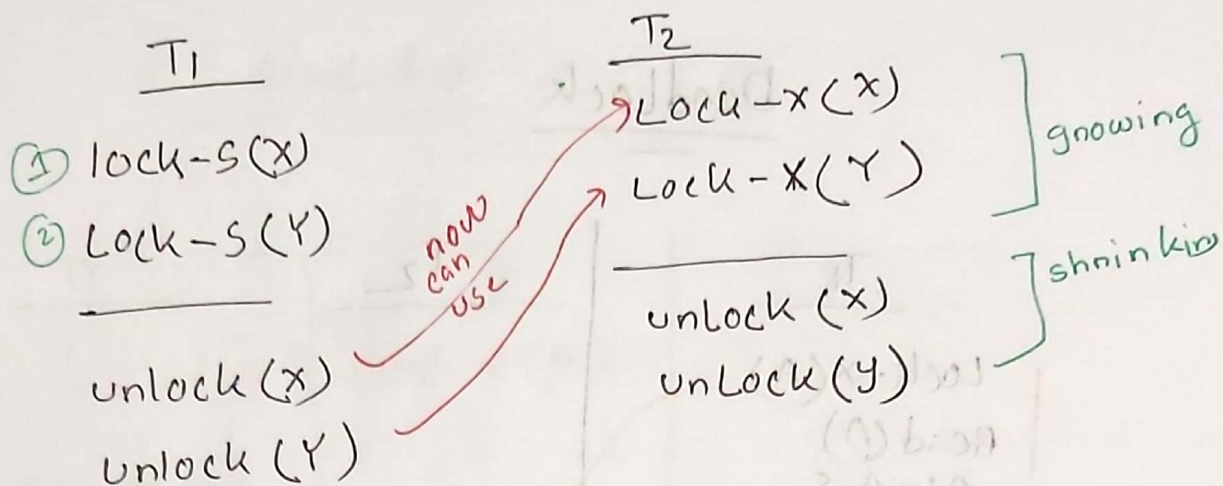 T1
① lock-S(X)
② Lock-S(Y)
unlock(X)
unlock(Y)
now
can
use
T2
Lock-X(X)
Lock-X(Y)
unlock(X)
unLock(y)
gnowing
shninking